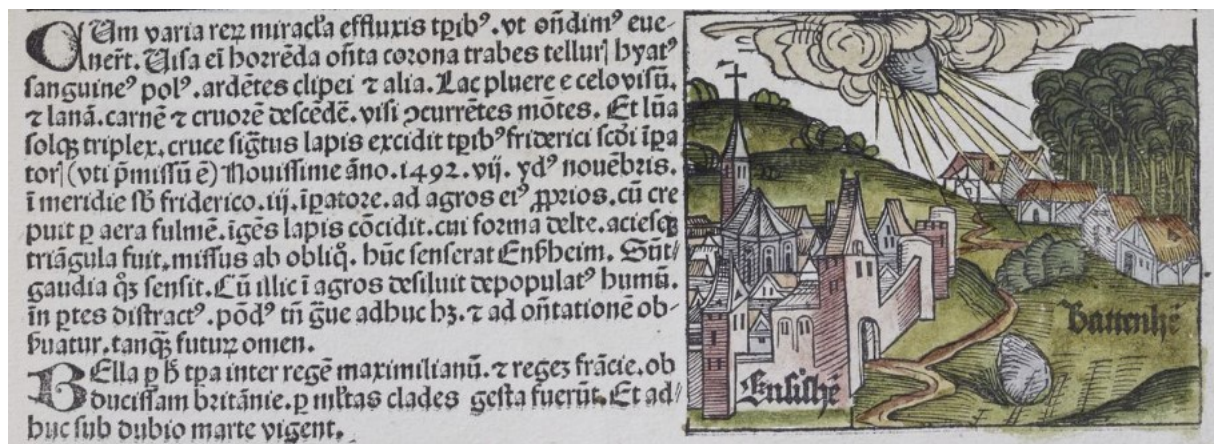 CUm varia reꝝ miracl̕a effluxis tp̄ibꝰ. vt on̄dimꝰ eue-
nert̄. Uisa ei̅ horrēda on̄ta corona trabes telluris hyatꝰ
sanguineꝰ polꝰ. ardētes clipei ⁊ alia. Lac pluere e celo visū.
⁊ lanā. carnē ⁊ cruorē descēdē. visi ꝯcurrētes mōtes. Et lūa
solqꝫ triplex. cruce sig̅tus lapis excidit tp̄ibꝰ friderici scd̄i īpa
toris (vti p̄missū ē) Nouissime āno. 1492. vij. ydꝰ nouēbris.
ī meridie sb̄ friderico. iij. īpatore. ad agros eiꝰ ꝓprios. cū cre
puit ꝑ aera fulmē. īgēs lapis cōcidit. cui forma delte. aciesqꝫ
triāgula fuit. missus ab obliqͦ. hūc senserat Ensheim. Sūt
gaudia qͦꝫ sensit. Cū illic ī agros desiluit depopulatꝰ humū.
īn ꝑtes distractꝰ. pōdꝰ tn̄ g̅ue adhuc hꝫ. ⁊ ad on̄tationē ob-
ẜuatur. tanqꝫ̄ futuꝝ omen.
BElla ꝑ h̄ tꝑa inter regē maximilianū. ⁊ regeꝫ frācie. ob
ducissam britānie. ꝑ ml̕tas clades gesta fuerūt. Et ad-
huc sub dubio marte vigent.
Battenhē
Ensishē